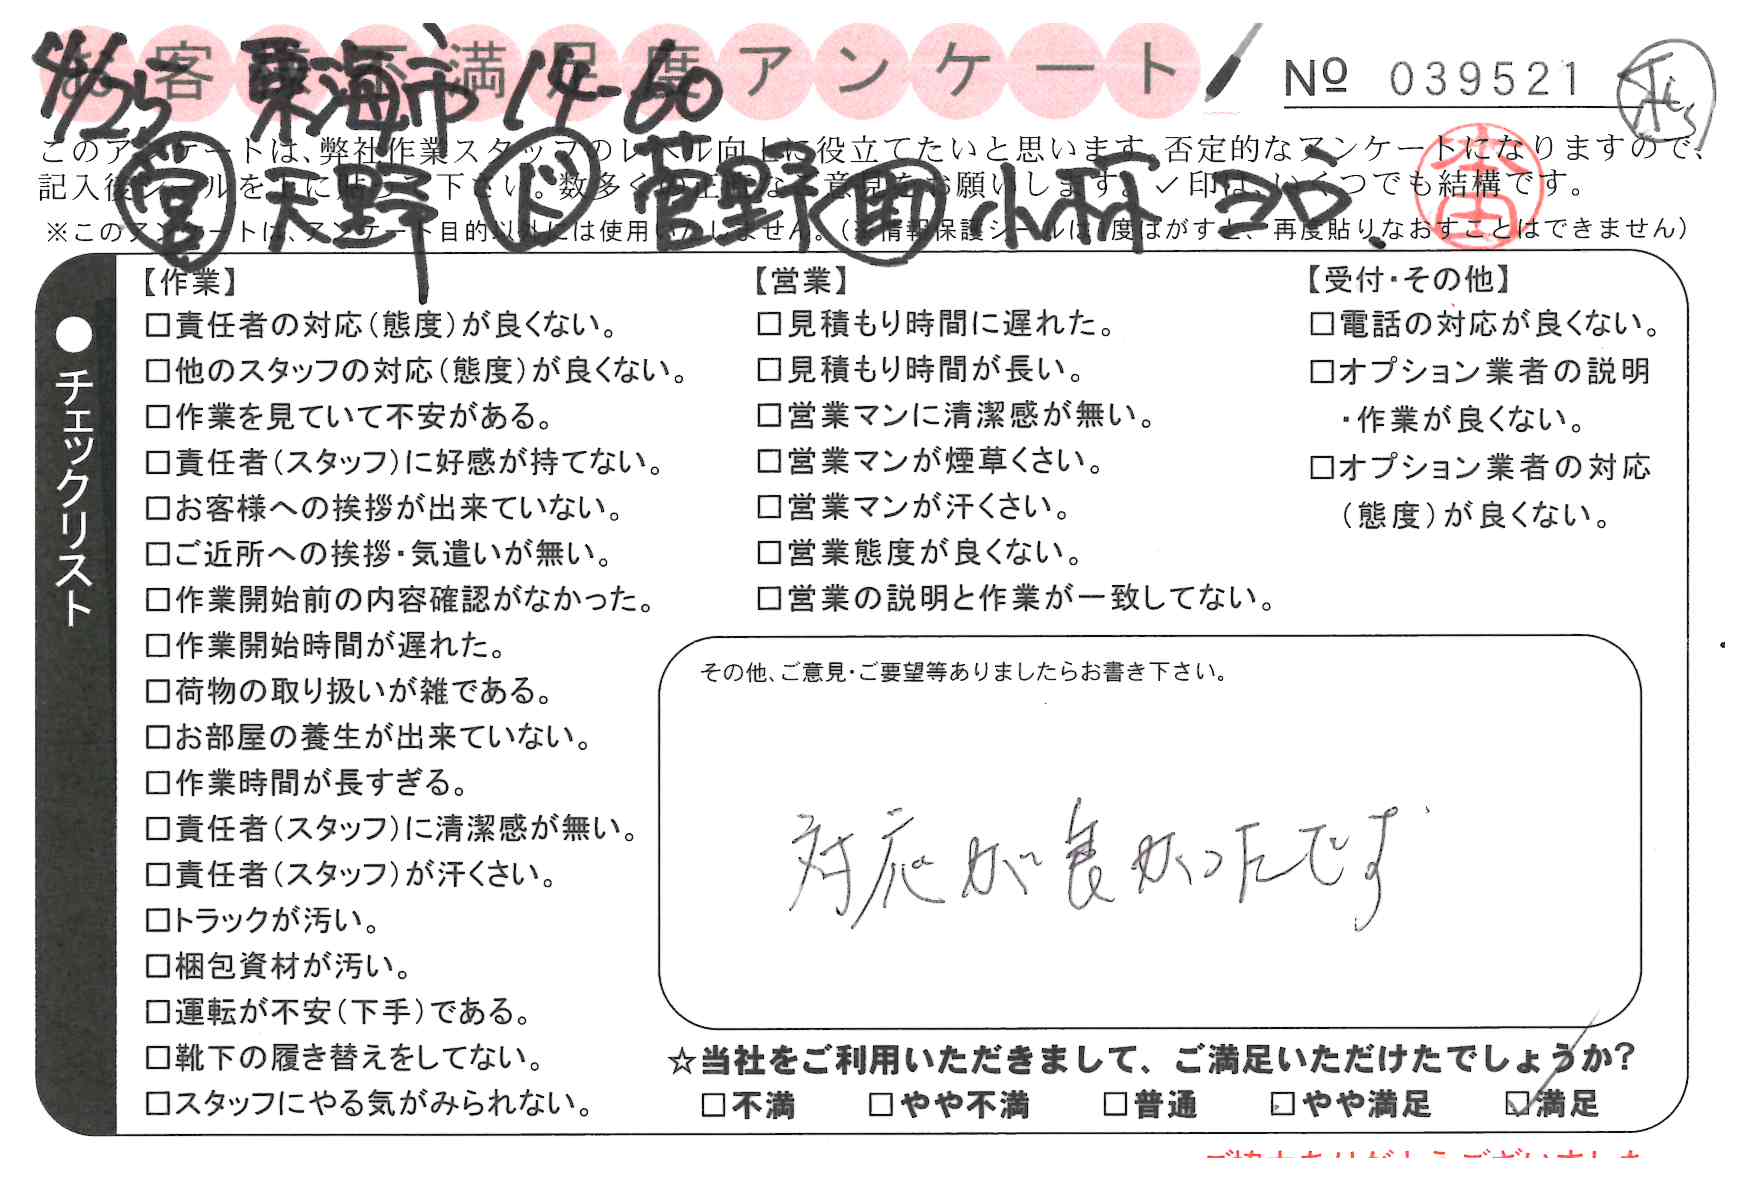 お客様不満足度アンケート
№ 039521
4/25 東海市 14-60
このアンケートは、弊社作業スタッフのレベル向上に役立てたいと思います。否定的なアンケートになりますので、
営 天野 ド 菅野 面 小林 コロ.
記入後シールを上に貼って下さい。数多くの正直なご意見をお願いします。✓印は、いくつでも結構です。
※このアンケートは、アンケート目的以外には使用いたしません。(※情報保護シールは1度はがすと、再度貼りなおすことはできません)
●チェックリスト
【作業】
□責任者の対応(態度)が良くない。
□他のスタッフの対応(態度)が良くない。
□作業を見ていて不安がある。
□責任者(スタッフ)に好感が持てない。
□お客様への挨拶が出来ていない。
□ご近所への挨拶・気遣いが無い。
□作業開始前の内容確認がなかった。
□作業開始時間が遅れた。
□荷物の取り扱いが雑である。
□お部屋の養生が出来ていない。
□作業時間が長すぎる。
□責任者(スタッフ)に清潔感が無い。
□責任者(スタッフ)が汗くさい。
□トラックが汚い。
□梱包資材が汚い。
□運転が不安(下手)である。
□靴下の履き替えをしてない。
□スタッフにやる気がみられない。
【営業】
□見積もり時間に遅れた。
□見積もり時間が長い。
□営業マンに清潔感が無い。
□営業マンが煙草くさい。
□営業マンが汗くさい。
□営業態度が良くない。
□営業の説明と作業が一致してない。
【受付・その他】
□電話の対応が良くない。
□オプション業者の説明
・作業が良くない。
□オプション業者の対応
(態度)が良くない。
その他、ご意見・ご要望等ありましたらお書き下さい。
対応が良かったです
☆当社をご利用いただきまして、ご満足いただけたでしょうか?
□不満 □やや不満 □普通 □やや満足 ☑満足